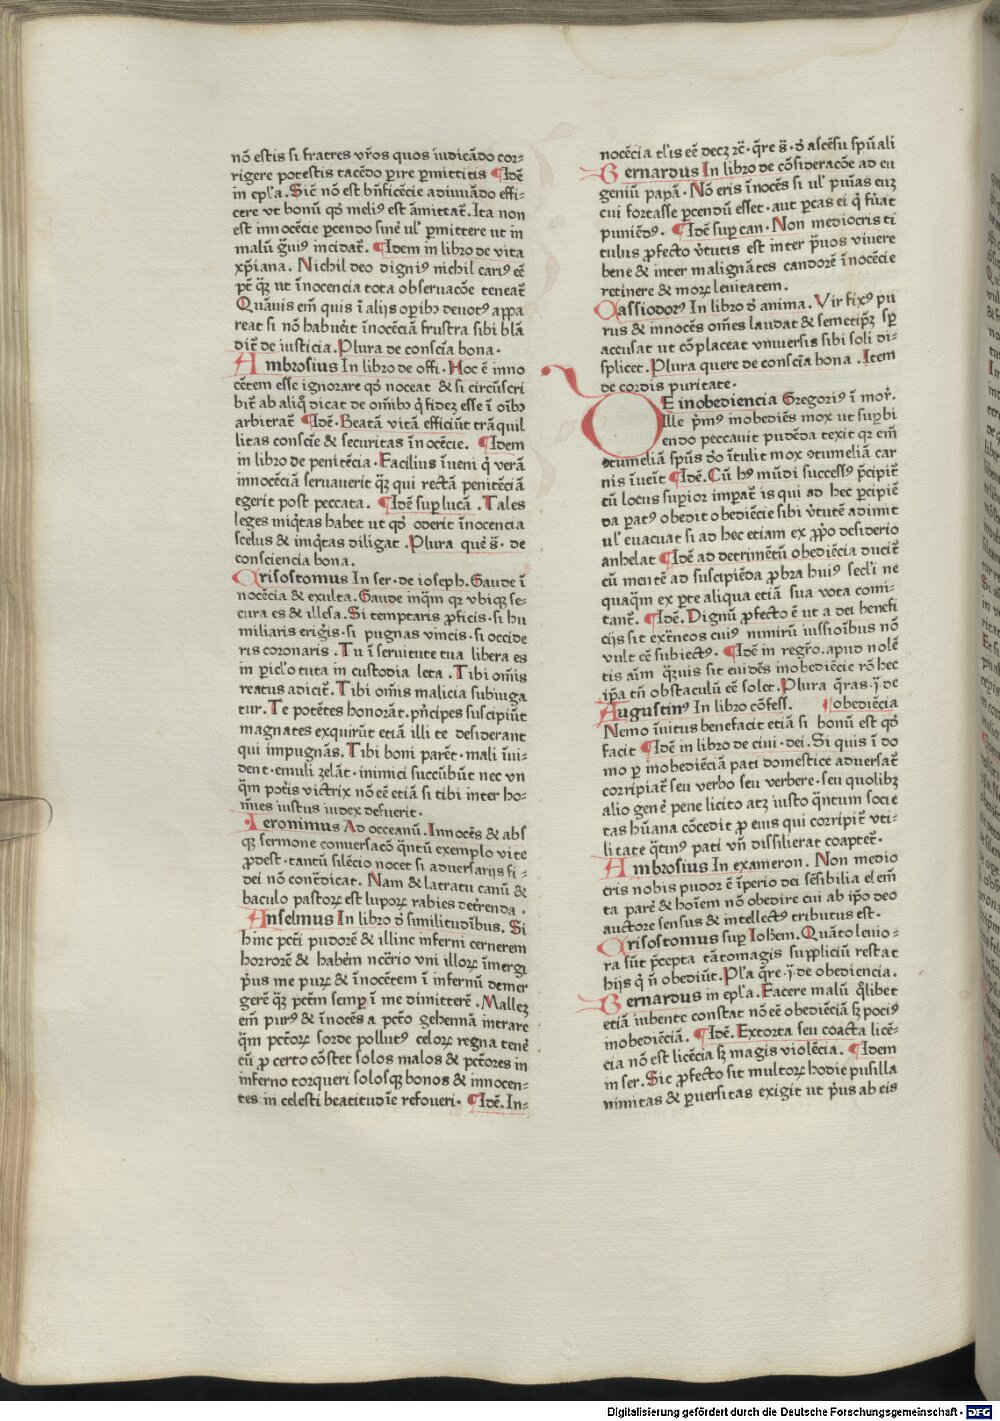 nō estis si fratres vr̄os quos iudicādo cor⸗
rigere potestis tacēdo ꝑire ꝑmittitis ¶Idē
in epl'a. Sic̄ nō est bn̄ficēcie adiuuādo effi⸗
cere vt bonū qd' meliꝰ est āmittat̄. Ita non
est innocēcie ꝑcendo sine ul' ꝑmittere ut in
malū ḡuiꝰ incidat̄. ¶Idem in libro de vita
xp̄iana. Nichil deo digniꝰ nichil cariꝰ eē
pt̄ qƺ ut īnocencia tota obseruacōe teneat̄
Quāuis em̄ quis ī alijs oꝑibꝰ deuotꝰ appa
reat si nō habuēit īnocēciā frustra sibi blā
dit̄ de iusticia. Plura de conscīa bona.
Ambrosius In libro de offi. Hoc ē inno
cētem esse ignorare qd' noceat & si circūscri
bit̄ ab aliq̄ dicat de omībꝰ q̄ fidez esse ī oībꝰ
arbitrat̄ ¶Idē. Beatā vitā efficiūt trāquil
litas conscīe & securitas īnocēcie. ¶Idem
in libro de penitēcia. Facilius īueni q̇ verā
innocēciā seruauerit qƺ qui rectā penitēciā
egerit post peccata. ¶Idē suꝑ lucā. Tales
leges miq̄tas habet ut qd' oderit īnocencia
scelus & imq̄tas diligat. Plura quē s̄. de
consciencia bona.
Crisostomus In ser. de ioseph. Gaude ī
nocēcia & exulta. Gaude inq̄m qꝛ vbiqꝫ se⸗
cura es & illesa. Si temptaris ꝓficis. si hu
miliaris erigis. si pugnas vincis. si occide
ris coronaris. Tu ī seruitute tua libera es
in ꝑicl'o tuta in custodia leta. Tibi om̄is
reatus adicit̄. Tibi om̄is malicia subiuga
tur. Te potētes honorāt. pn̄cipes suscipiūt
magnates exquirūt etiā illi te desiderant
qui impugnās. Tibi boni parēt. mali īui⸗
dent. emuli zelāt. inimici succūbūt nec vn
q̄m pot̄is victrix nō eē etiā si tibi inter ho⸗
m̄es iustus iudex defuerit.
Ieronimus Ad occeanū. Innocēs & absꝫ
qꝫ sermone conuersacō q̄ntū exemplo vite
ꝓdest. tantū silēcio nocet si aduersarijs fi⸗
dei nō cont̄dicat. Nam & latratu canū &
baculo pastoꝝ est lupoꝝ rabies det̄renda.
Anselmus In libro d' similitudībus. Si
hinc pcc̄i pudorē & illinc inferni cernerem
horrorē & habem̄ nc̄cio vni illoꝝ īmergi
pͥus me puꝝ & īnocētem ī infernū demer
gerē qƺ pcc̄m semꝑ ī me dimitterē. Mallez
em̄ purꝰ & īnocēs a pcc̄o gehennā intrare
q̄m pcc̄oꝝ sorde pollutꝰ celoꝝ regna tenē
cū ꝓ certo cōstet solos malos & pcc̄ores in
inferno torqueri solosqꝫ bonos & innocen⸗
tes in celesti beatitudīe refoueri. ¶Idē. In⸗
nocēcia tl'is eē decꝫ ꝛc̄. q̄re s̄. d' ascēsu spūali
Bernardus In libro de cōsideracōe ad eu
geniū papā. Nō eris īnocēs si ul' puīas eūz
cui fortasse ꝑcendū esset. aut ꝑcas ei q̇ fūat
puniēdꝰ. ¶Idē suꝑ can. Non mediocris ti
tulus ꝓfecto v̄tutis est inter pͣuos viuere
bene & inter malignātes candorē īnocēcie
retinere & moꝝ leuitatem.
Cassiodorꝰ In libro d' anima. Vir fixꝰ pu
rus & innocēs om̄es laudat & semetip̄ꝫ sꝑ
accusat ut cōplaceat vniuersis sibi soli di⸗
splicet. Plura quere de conscīa bona. Item
de cordis puritate.
DE inobediencia Gregoriꝰ ī mor̄.
Ille pͥmꝰ inobediēs mox ut suꝑbi
endo peccauit pudēda texit qꝛ em̄
ꝯtumeliā spūs d'o ītulit mox ꝯtumeliā car
nis īueīt ¶Idē. Cū hꝰ mūdi successꝰ pͥcipit̄
cū locus suꝑior imꝑat̄ is qui ad hec ꝑcipiē
da ꝑatꝰ obedit obediēcie sibi v̄tutē adimit
ul' euacuat si ad hec etiam ex ꝓp̄o desiderio
anhelat ¶Idē ad detrimētū obediēcia ducit̄
cū mentē ad suscipiēda ꝓbra huiꝰ secl'i ne
quaq̄m ex ꝑte aliqua etiā sua vota comi⸗
tant̄. ¶Idē. Dignū ꝓfecto ē ut a dei benefi
cijs sit ext̄neos cuiꝰ nimirū iussioībus nō
vult eē subiectꝰ. ¶Idē in regr̄o. apud nolē
tis aīm qƺuis sit euidēs inobediēcie rō hec
ip̄a tn̄ obstaculū eē solet. Plura q̄ras. j̄. de
Augustinꝰ In libro cōfess. ¶obediēcia
Nemo īuitus benefacit etiā si bonū est qd'
facit ¶Idē in libro de ciui. dei. Si quis ī do
mo ꝑ inobediēciā pati domestice aduersat̄
corripiat̄ seu verbo seu verbere. seu quolibꝫ
alio gen̄e pene licito atꝫ iusto q̄ntum socie
tas hūana cōcedit ꝓ eius qui corripit̄ vti⸗
litate q̄tinꝰ pati vn̄ dissilierat coaptet̄.
Ambrosius In exameron. Non medio
cris nobis pudor ē īperio dei sēsibilia elem̄
ta parē & hoīem nō obedire cui ab ip̄o deo
auctore sensus & intellectꝰ tributus est.
Crisostomus suꝑ Ioh̄em. Quāto leuio⸗
ra sūt pͥcepta tātomagis suppliciū restat
hijs q̇ nͦ obediūt. Pl'a q̄re. j̄. de obediencia.
Bernardus in epl'a. Facere malū q̄libet
etiā iubente constat nō eē obediēciā sꝫ pociꝰ
inobediēciā. ¶Idē. Extorta seu coacta licē⸗
cia nō est licēcia sꝫ magis violēcia. ¶Idem
in ser. Sic ꝓfecto sit multoꝝ hodie pusilla
nimitas & ꝑuersitas exigit ut pͥus ab eis
Digitalisierung gefördert durch die Deutsche Forschungsgemeinschaft - DFG